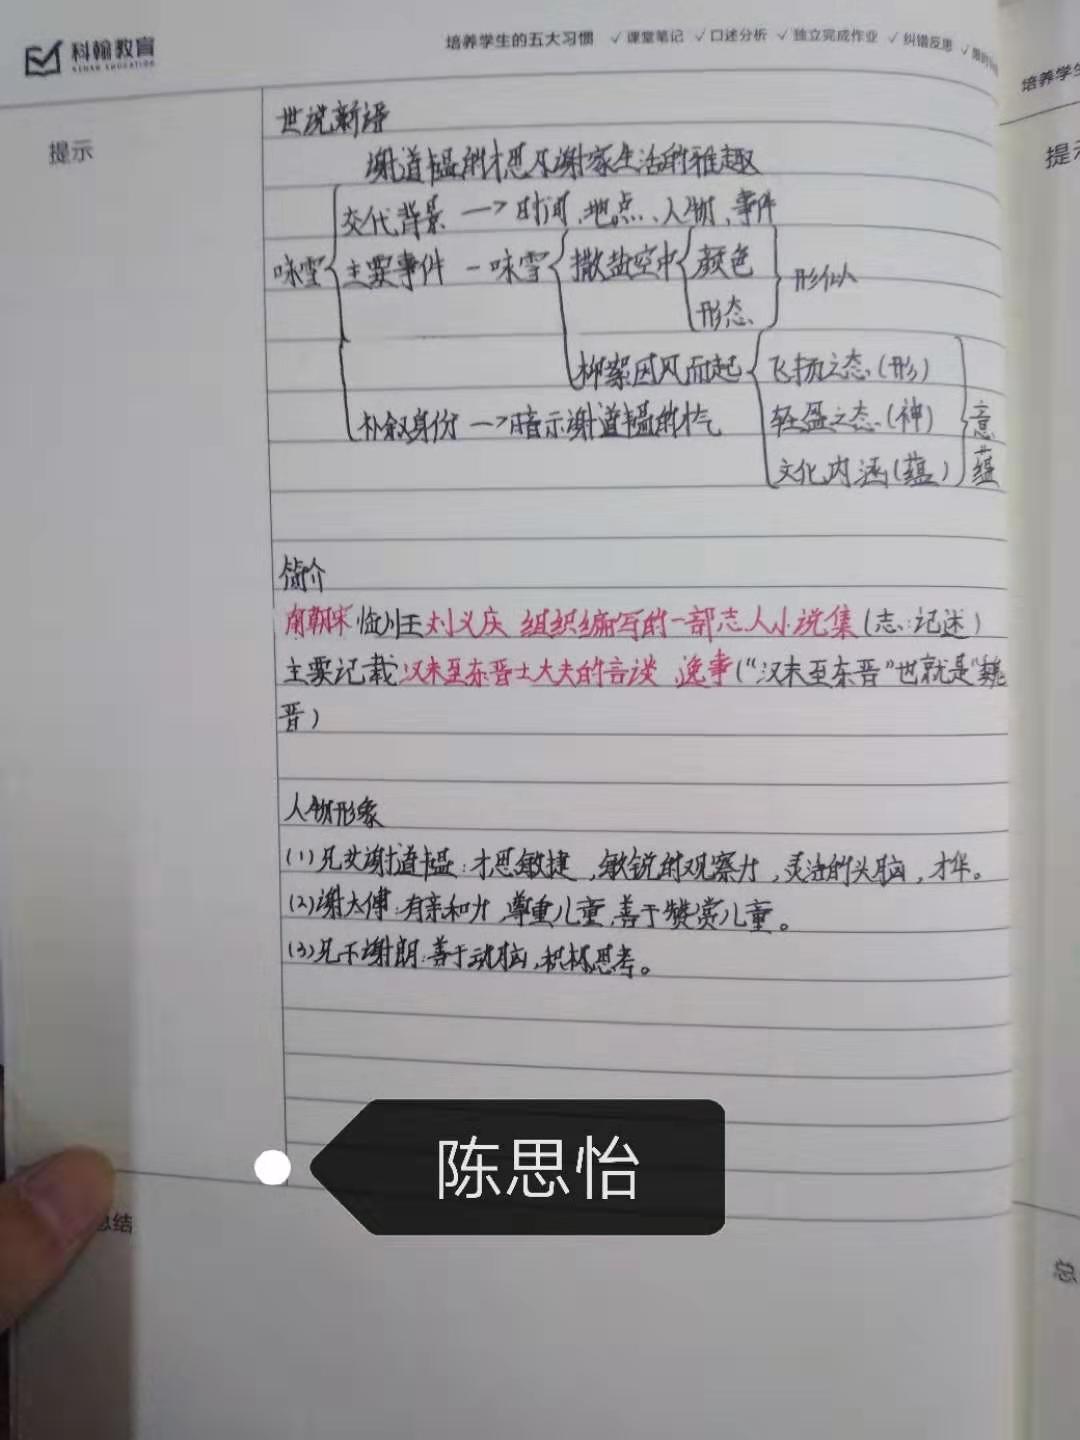 科翰教育
KEHAN EDUCATION
培养学生的五大习惯 ✓课堂笔记 ✓口述分析 ✓独立完成作业 ✓纠错反思 ✓
培养学生
提示
提示
世说新语
谢道韫的才思及谢家生活的雅趣
交代背景 → 时间、地点、人物、事件
咏雪 主要事件 - 咏雪 撒盐空中 颜色 形似
形态
柳絮因风而起 飞扬之态(形)
补叙身份 → 暗示谢道韫的才气 轻盈之态(神) 意蕴
文化内涵(蕴)
简介
南朝宋临川王刘义庆 组织编写的一部志人小说集(志:记述)
主要记载汉末至东晋士大夫的言谈、逸事("汉末至东晋"也就是"魏
晋)
人物形象
(1)兄女谢道韫:才思敏捷,敏锐的观察力,灵活的头脑,才华。
(2)谢太傅:有亲和力,尊重儿童,善于赞赏儿童。
(3)兄子谢朗:善于动脑,积极思考。
陈思怡
总结
总